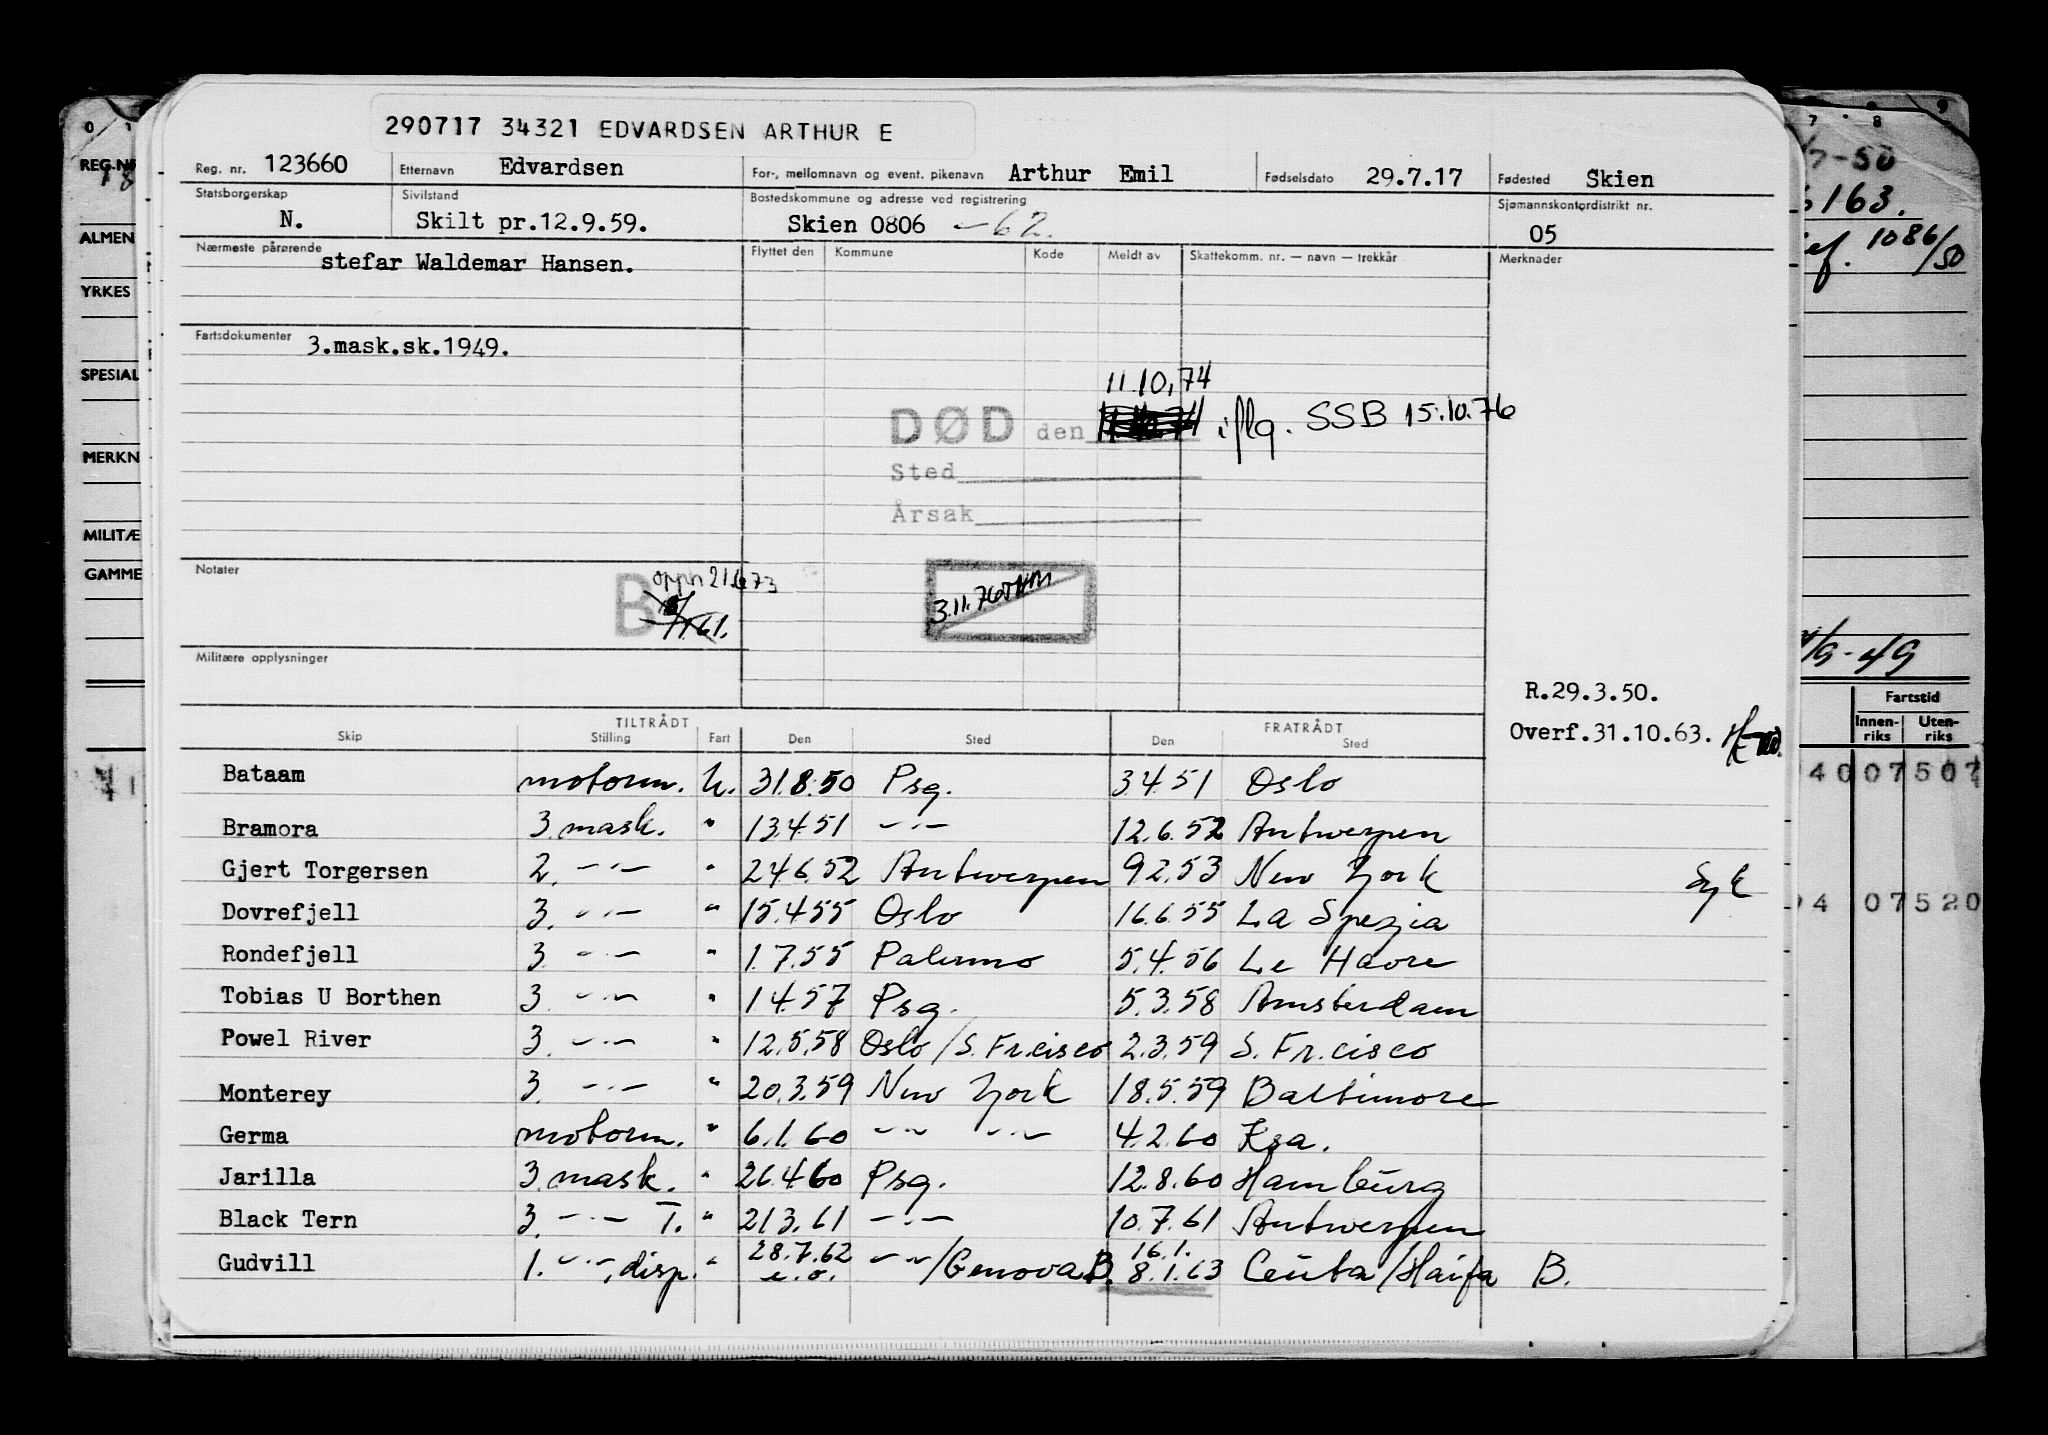 290717 34321 EDVARDSEN ARTHUR E
Reg. nr. 123660 Etternavn Edvardsen For-, mellomnavn og event. pikenavn Arthur Emil Fødselsdato 29.7.17 Fødested Skien
Statsborgerskap N. Sivilstand Skilt pr.12.9.59. Bostedskommune og adresse ved registrering Skien 0806 -62. Sjømannskontordistrikt nr. 05
Nærmeste pårørende stefar Waldemar Hansen. Flyttet den Kommune Kode Meldt av Skattekomm. nr. — navn — trekkår Merknader
Fartsdokumenter 3.mask.sk.1949.
11.10.74
DØD den iflg. SSB 15.10.76
Sted
Årsak
Notater B oppn 21.6.73
1.61.
3.11.76
Militære opplysninger
R.29.3.50.
Overf.31.10.63.
TILTRÅDT FRATRÅDT
Skip Stilling Fart Den Sted Den Sted
Bataam motorm. U. 31.8.50 Psg. 3.4.51 Oslo
Bramora 3. mask. " 13.4.51 -"- 12.6.52 Antwerpen
Gjert Torgersen 2. -"- " 24.6.52 Antwerpen 9.2.53 New York Syk
Dovrefjell 3. -"- " 15.4.55 Oslo 16.6.55 La Spezia
Rondefjell 3. -"- " 1.7.55 Palermo 5.4.56 Le Havre
Tobias U Borthen 3. -"- " 1.4.57 Psg. 5.3.58 Amsterdam
Powel River 3. -"- " 12.5.58 Oslo/S. Fr.cisco 2.3.59 S. Fr.cisco
Monterey 3. -"- " 20.3.59 New York 18.5.59 Baltimore
Germa motorm. " 6.1.60 -"- -"- 4.2.60 Ksa.
Jarilla 3. mask. " 26.4.60 Psg. 12.8.60 Hamburg
Black Tern 3. -"- T. " 21.3.61 -"- 10.7.61 Antwerpen
Gudvill 1. -"-, disp. " 28.7.62 e.o. -"-/Genova B. 16.1. 8.1.63 Ceuta/Haifa B.
REG.NR
ALMEN
YRKES
SPESIAL
MERKN
MILITÆ
GAMME
7 8 9
-50
163.
1086/50
/9-49
Fartstid
Innenriks Utenriks
4007507
94 07520